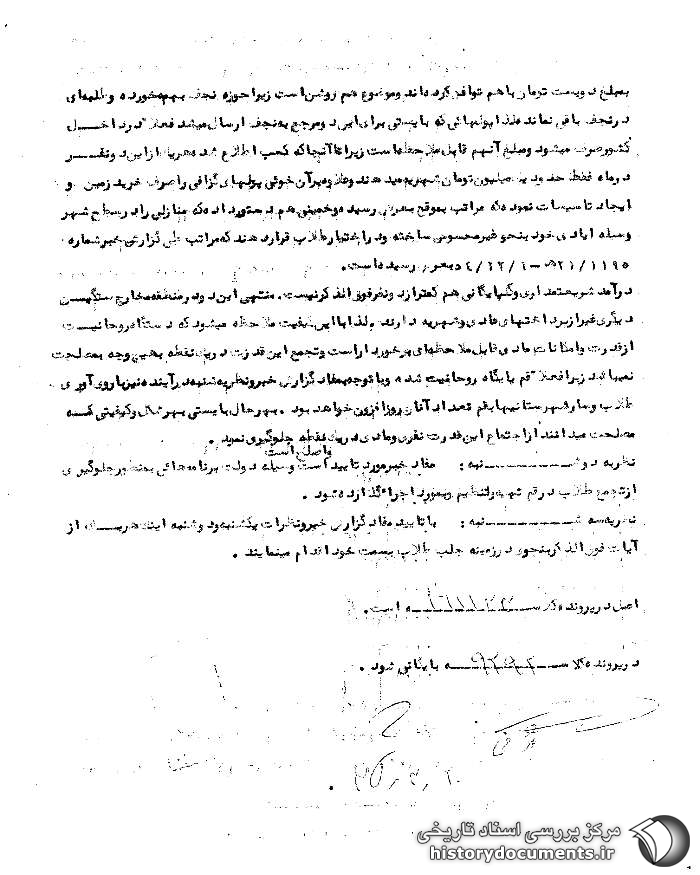 بمبلغ دویست تومان با هم توافق کرده‌اند وموضوع هم روشن است زیرا حوزه نجف بهم خورده و طلبه‌ای
در نجف باقی نمانده لذا پولهائی که بایستی برای این دو مرجع به نجف ارسال میشد فعلا در داخل
کشور صرف میشود ومبلغ آنهم قابل ملاحظه است زیرا تا آنجا که کسب اطلاع شده هر یک از این دو نفر
در ماه فقط حدود یک میلیون تومان شهریه میدهند وعلاوه بر آن خوئی پولهای گزافی را صرف خرید زمین و
ایجاد تاسیسات نموده که مراتب بموقع بعرض رسیده و خمینی هم دستور داده که منازلی را در سطح شهر
وسیله ایادی خود بنحو غیر محسوس ساخته ودر اختیار طلاب قرار دهند که مراتب طی گزارش خبر شماره
۲۱/۱۱۹۵ه‍ - ۴/۱۲/۱ بعرض رسیده است.
درآمد شریعتمداری وگلپایگانی هم کمتر از دو نفر فوق الذکر نیست. منتهی این دو در منطقه مخارج سنگین
دیگری غیر از پرداختهای مادی وشهریه دارند. لذا با این کیفیت ملاحظه میشود که دستگاه روحانیت
از قدرت وامکانات مادی قابل ملاحظه‌ای برخوردار است وتجمع این قدرت در یک نقطه بهیچوجه بمصلحت
نمیباشد زیرا فعلا قم پایگاه روحانیت شده وبا توجه بمفاد گزارش خبر ونظریه شنبه در آینده نیز با روی آوری
طلاب وسایر شهرستانیها بقم تعداد آنان روز افزون خواهد بود. بهر حال بایستی بهر شکل وکیفیتی که
مصلحت میدانند از اجتماع این قدرت نفری ومادی در یک نقطه جلوگیری نمود.
نظریه دوشنبه: مفاد خبر مورد تایید است واصلح است وسیله دولت برنامه‌هائی بمنظور جلوگیری
از تجمع طلاب در قم تهیه وتنظیم وبمورد اجرا گذارده شود.
نظریه سه شنبه: با تایید مفاد گزارش خبر ونظرات یکشنبه ودوشنبه اینکه هر یک از
آیات فوق الذکر بنحوی در زمینه جلب طلاب بسمت خود اقدام مینمایند.
اصل در پرونده کلاسه است.
در پرونده کلاسه بایگانی شود.
مرکز بررسی اسناد تاریخی
historydocuments.ir